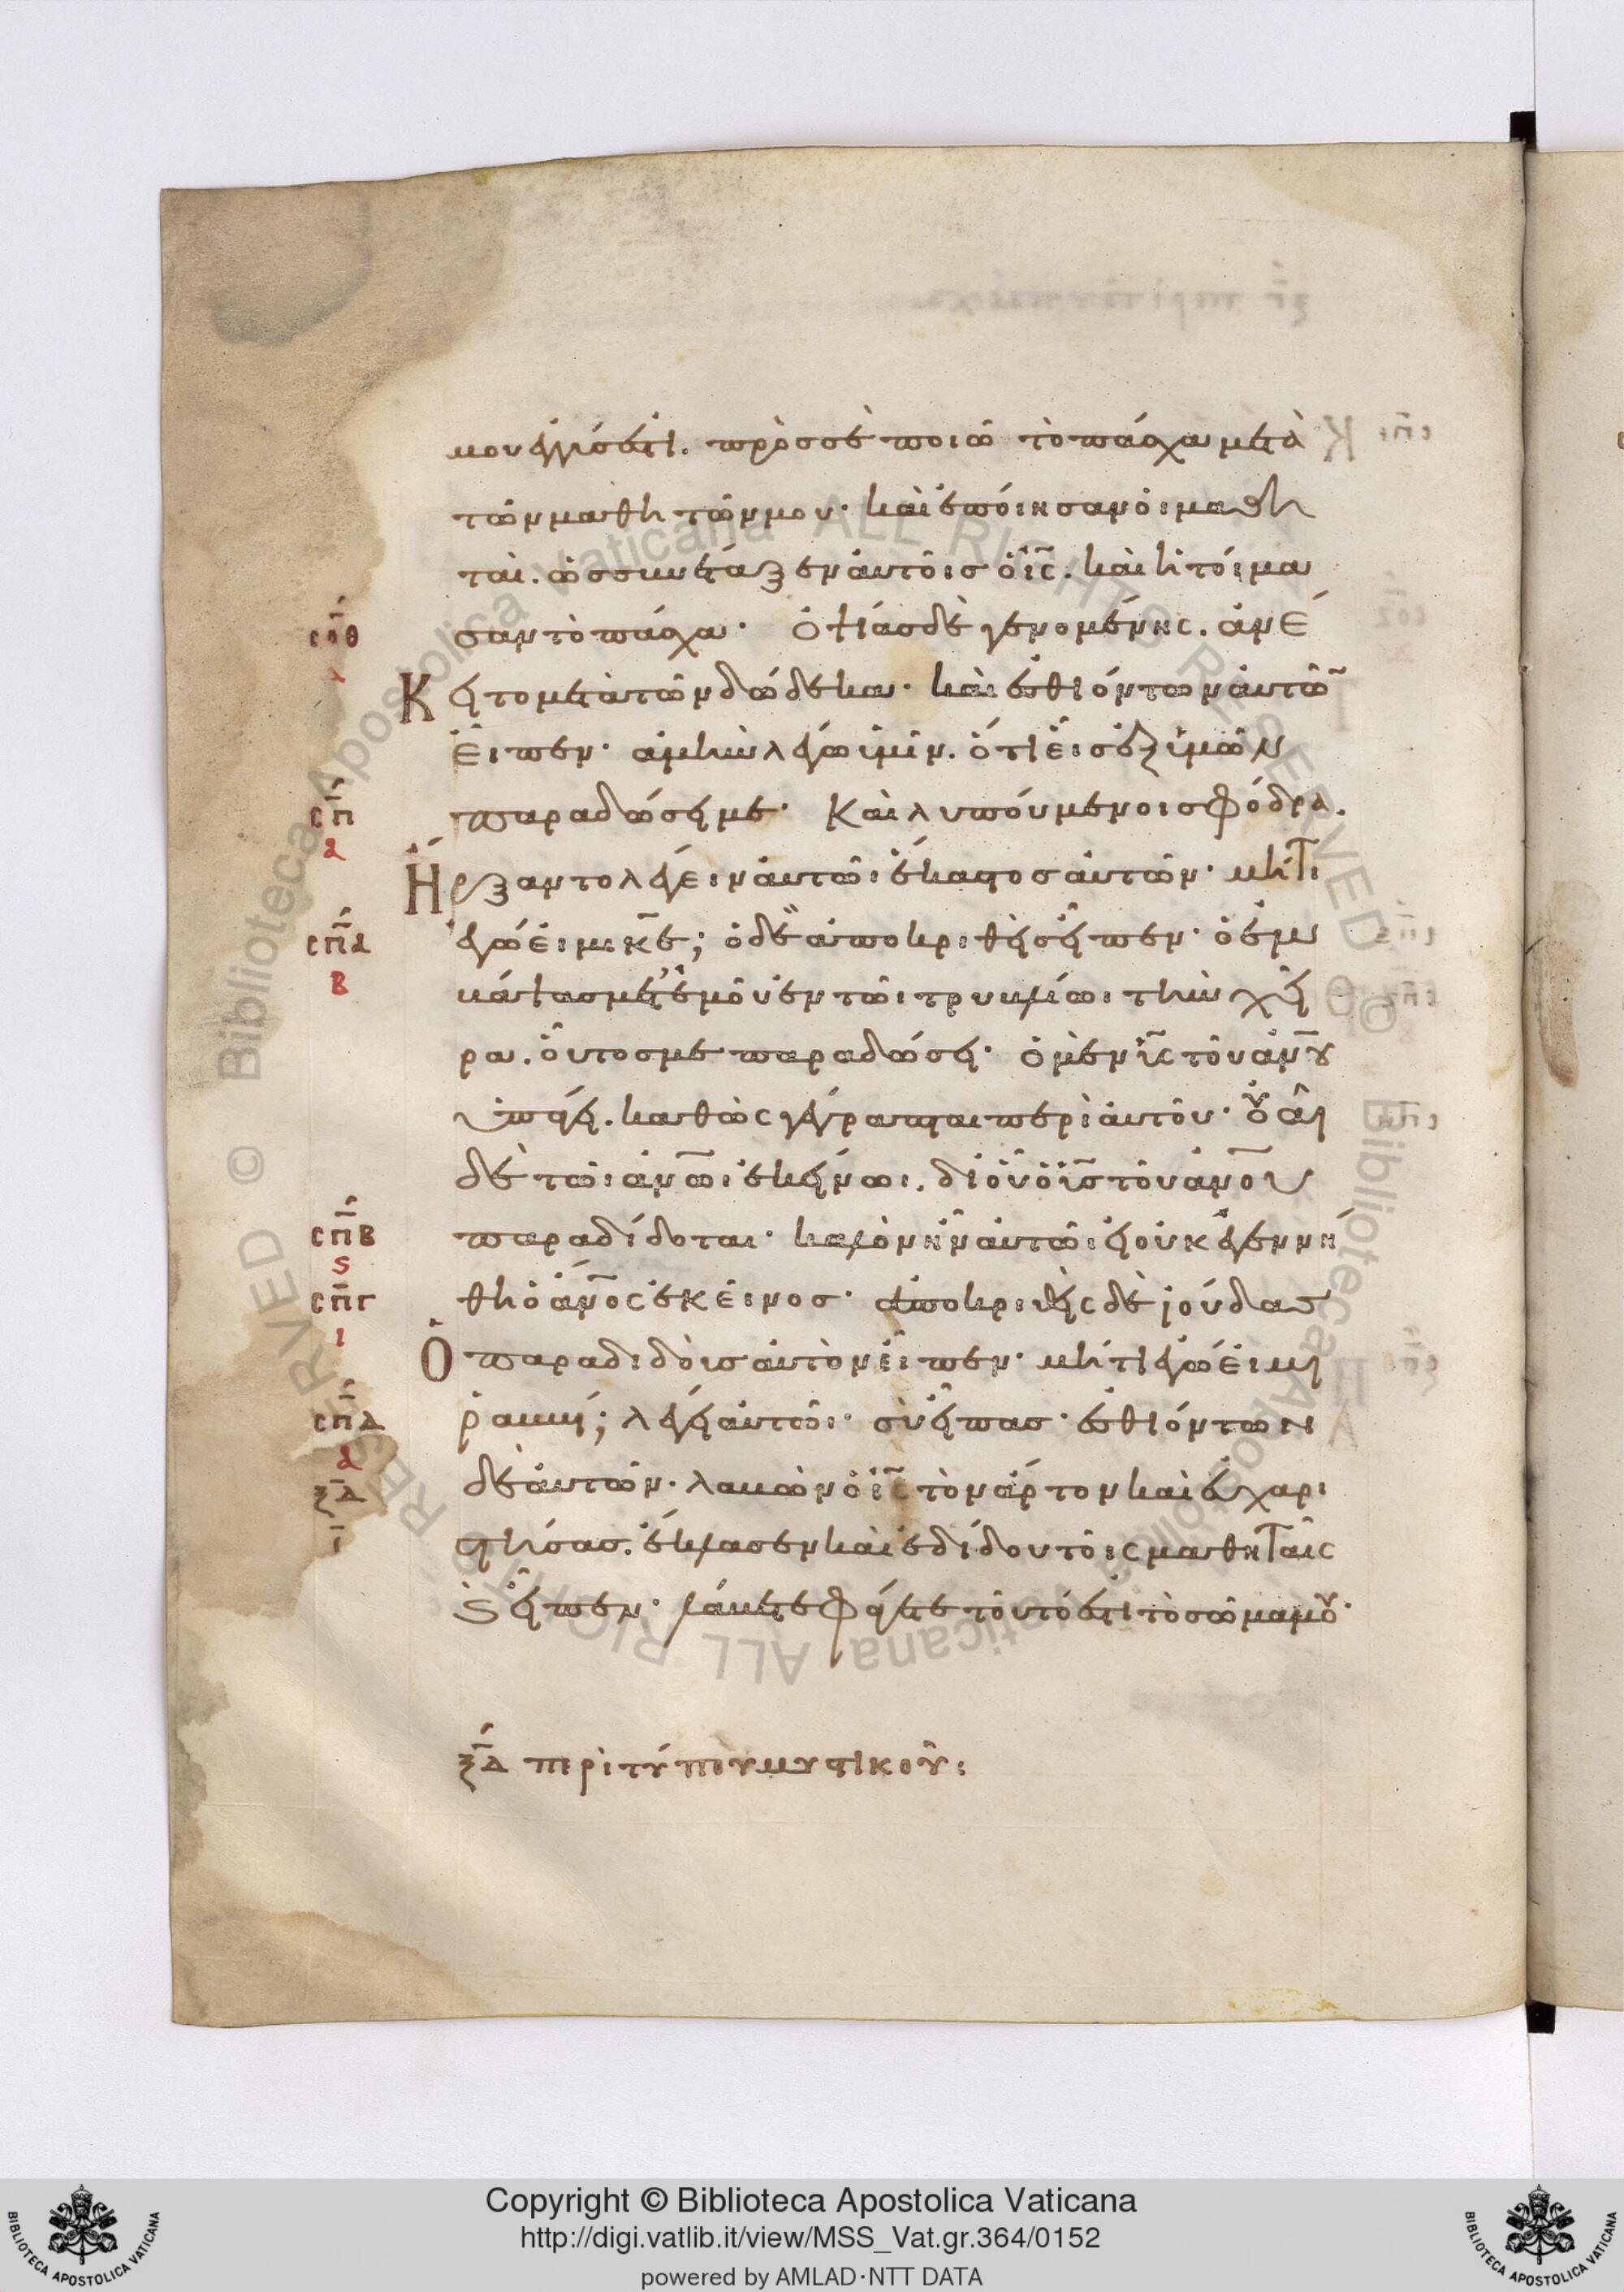 μου ἐγγύς ἐστι. πρὸς σὲ ποιῶ τὸ πάσχα μετὰ
τῶν μαθητῶν μου· καὶ ἐποίησαν οἱ μαθη
ταὶ. ὡς συνέταξεν αὐτοῖς ὁ ις̅. καὶ ἡτοίμα
σοθ σαν τὸ πάσχα· ὀψίας δὲ γενομένης. ἀνέ
Κ ειτο μετὰ τῶν δώδεκα· καὶ ἐσθιόντων αὐτῶ̅
εἶπεν· ἀμὴν λέγω ὑμῖν. ὅτι εἷς ἐξ ὑμῶν
σπ παραδώσει με· Καὶ λυπούμενοι σφόδρα.
α
Ἤρξαντο λέγειν αὐτῶι ἕκαστος αὐτῶν· μήτι
σπα ἐγώ εἰμι κ̅ε; ὁ δὲ ἀποκριθεὶς εἶπεν· ὁ ἐμ
β βάψας μετ' ἐμοῦ ἐν τῶι τρυβλίωι τὴν χεῖ
ρα. οὗτός με παραδώσει· ὁ μὲν υις̅ τοῦ ἀν̅ου
ὑπάγει. καθὼς γέγραπται περὶ αὐτοῦ· οὐαὶ
δὲ τῶι ἀν̅ωι ἐκείνωι. δι' οὗ ὁ υις̅ τοῦ ἀν̅ου
σπβ παραδίδοται· καλὸν ἦν αὐτῶι εἰ οὐκ ἐγεννή
ς
σπγ θη ὁ ἄν̅ος ἐκεῖνος· ἀποκριθεὶς δὲ ἰούδας
ι
Ὁ παραδιδοὺς αὐτὸν εἶπεν· μήτι ἐγώ εἰμι
σπδ ῥαββί; λέγει αὐτῶι· σὺ εἶπας· ἐσθιόντων
α
ξδ δὲ αὐτῶν. λαβὼν ὁ ις̅ τὸν ἄρτον καὶ εὐχαρι
στήσας. ἔκλασεν καὶ ἐδίδου τοῖς μαθηταῖς
ϗ εἶπεν· λάβετε φάγετε τοῦτό ἐστι τὸ σῶμα μου·
ξδ περὶ τύπου μυστικοῦ:
Copyright © Biblioteca Apostolica Vaticana
http://digi.vatlib.it/view/MSS_Vat.gr.364/0152
powered by AMLAD·NTT DATA